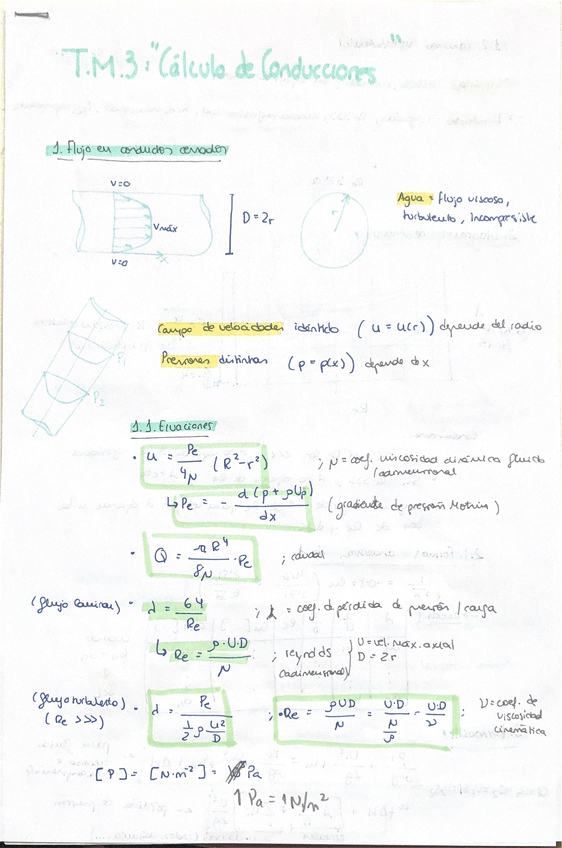 T.M.3: "Cálculo de Conducciones"
1. Flujo en conductos cerrados
v=0
Vmáx
D=2r
r
Agua = flujo viscoso,
turbulento, incompresible
v=0
x
Campo de velocidades idéntido (u=u(r)) depende del radio
Presiones distintas (p=p(x)) depende de x
P1
P2
1.1. Ecuaciones
• u = Pe/4μ (R²-r²) ; μ = coef. viscosidad dinámica fluido /adimensional
↳ Pe = - d(p+ρUp)/dx (gradiente de presión Motriz)
• Q = πR⁴/8μ · Pe ; caudal
(flujo laminar) • λ = 64/Re ; λ = coef. de pérdida de presión / carga
↳ Re = ρ·U·D/μ ; reynolds (adimensional) { U=vel. máx. axial
D = 2r
(flujo turbulento) • λ = Pe / (1/2 ρ U²/D) ; • Re = ρUD/μ = U·D/(μ/ρ) = U·D/ν ; ν=coef. de
(Re >>>) viscosidad
cinemática
[P] = [N·m⁻²] = Pa
1 Pa = 1N/m²